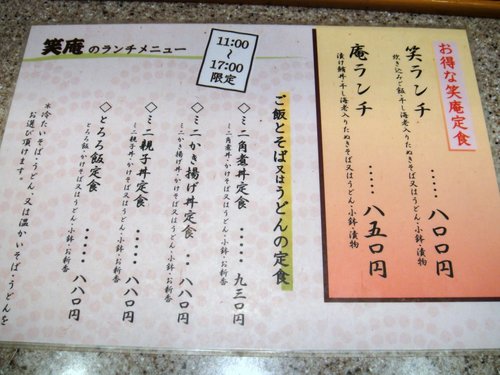 笑庵のランチメニュー
11:00
〜
17:00
限定
お得な笑庵定食
笑ランチ ‥‥‥ 八〇〇円
炊き込みご飯・干し海老入りたぬきそば又はうどん・小鉢・漬物
庵ランチ ‥‥‥ 八五〇円
漬け鮪丼・干し海老入りたぬきそば又はうどん・小鉢・漬物
ご飯とそば又はうどんの定食
◇ミニ角煮丼定食 ‥‥‥ 九三〇円
ミニ角煮丼・かけそば又はうどん・小鉢・お新香
◇ミニかき揚げ丼定食 ‥‥ 八八〇円
ミニかき揚げ丼・かけそば又はうどん・小鉢・お新香
◇ミニ親子丼定食 ‥‥‥ 八八〇円
ミニ親子丼・かけそば又はうどん・小鉢・お新香
◇とろろ飯定食 ‥‥‥ 八八〇円
とろろ飯・かけそば又はうどん・小鉢・お新香
※冷たいそば・うどん、又は温かいそば・うどんを
お選び頂けます。